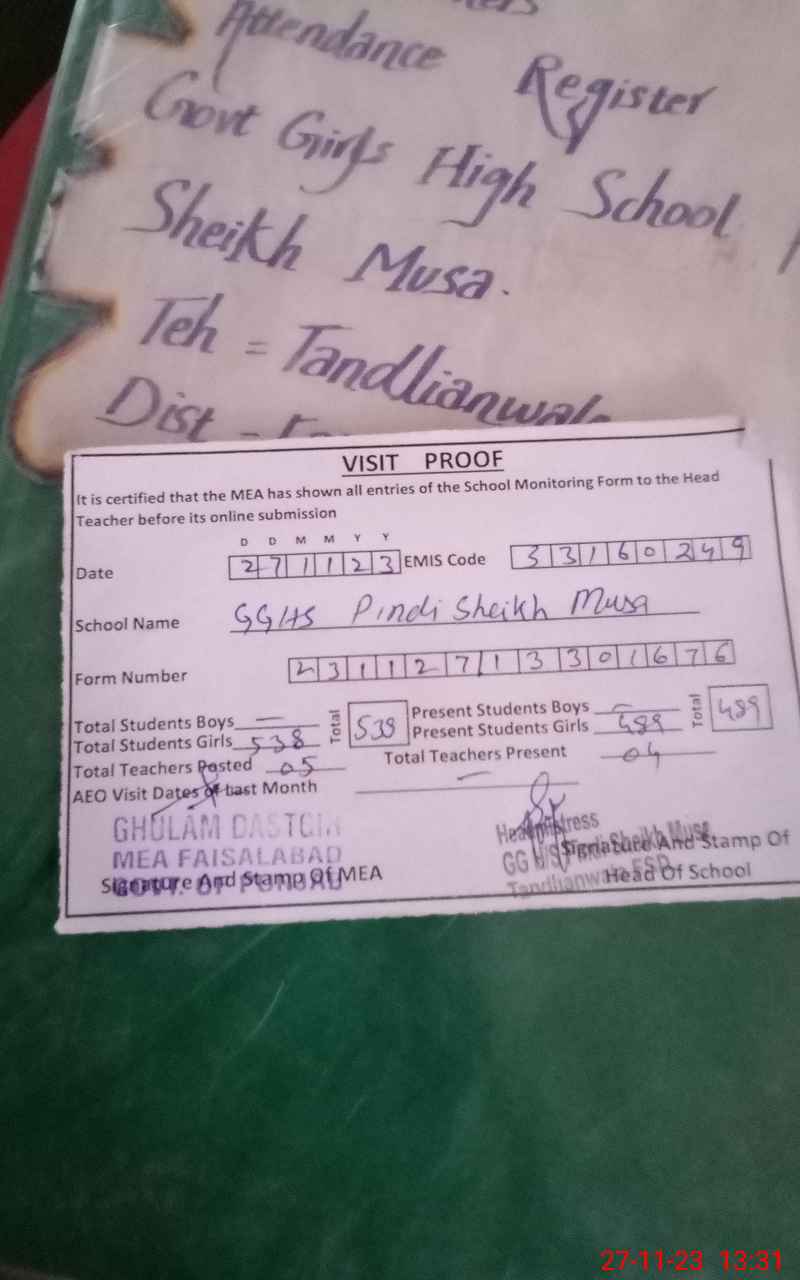 Attendance Register
Govt Girls High School
Sheikh Musa.
Teh = Tandlianwala
Dist -
VISIT PROOF
It is certified that the MEA has shown all entries of the School Monitoring Form to the Head
Teacher before its online submission
D D M M Y Y
Date 271123 EMIS Code 33160249
School Name GGHS Pindi Sheikh Musa
Form Number 23112713301676
Total Students Boys — Total 538 Present Students Boys — Total 489
Total Students Girls 538 Present Students Girls 489
Total Teachers Posted 05 Total Teachers Present 04
AEO Visit Dates of Last Month —
GHULAM DASTGIR
MEA FAISALABAD
GOVT. OF PUNJAB
Signature And Stamp Of MEA
Headmistress
GGHS Pindi Sheikh Musa
Tandlianwala FSD
Signature And Stamp Of
Head Of School
27-11-23 13:31